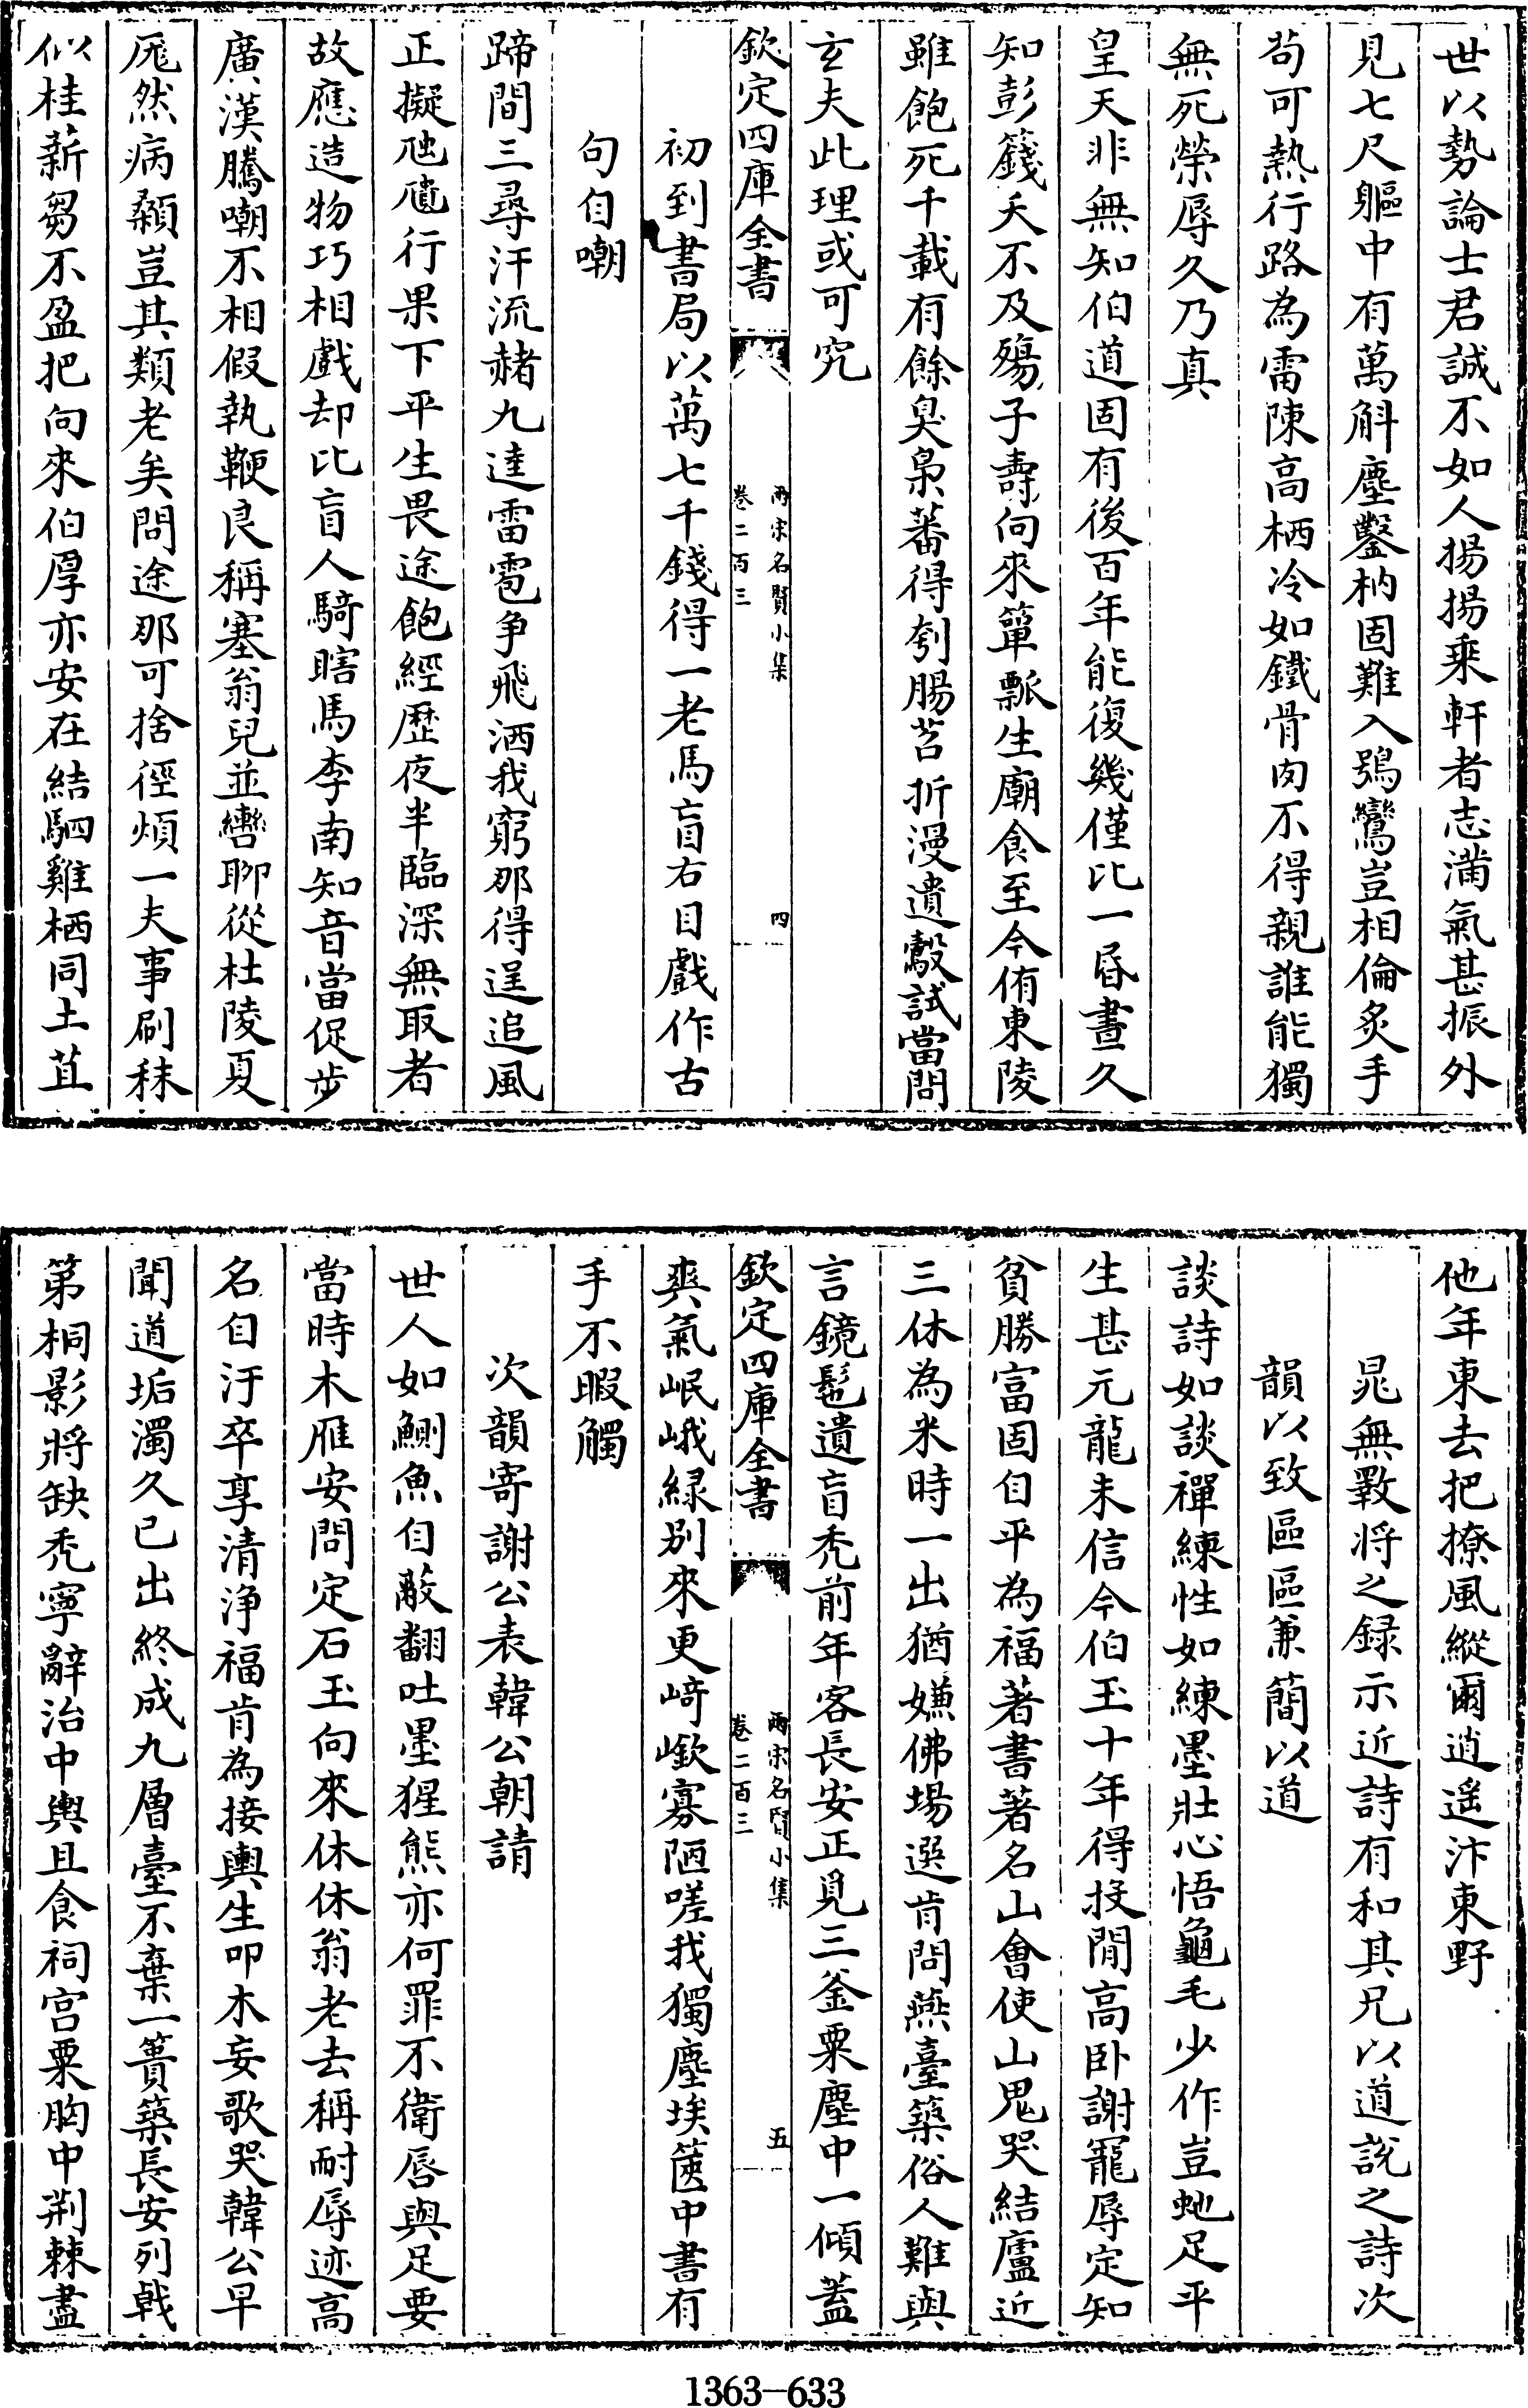 世以勢論士君誠不如人揚揚乘軒者志滿氣甚振外
見七尺軀中有萬斛塵鑿枘固難入鴞鸞豈相倫炙手
茍可熱行路為雷陳高栖冷如鐵骨肉不得親誰能獨
無死榮辱久乃真
皇天非無知伯道固有後百年能復幾僅比一昏晝久
知彭籛夭不及殤子壽向來簞瓢生廟食至今侑東陵
雖飽死千載有餘臭梟蕃得刳腸苕折漫遺鷇試當問
玄夫此理或可究
欽定四庫全書
兩宋名賢小集
卷二百三
四
初到書局以萬七千錢得一老馬盲右目戲作古
句自嘲
蹄間三尋汗流赭九逵雷雹争飛洒我窮那得逞追風
正擬虺隤行果下平生畏途飽經歷夜半臨深無取者
故應造物巧相戲却比盲人騎瞎馬李南知音當促步
廣漢騰嘲不相假執鞭良稱塞翁兒並轡聊從杜陵夏
尫然病顙豈其類老矣問途那可捨徑煩一夫事刷秣
似桂薪芻不盈把向來伯厚亦安在結駟雞栖同土苴
他年東去把撩風縱爾逍遙汴東野
晁無斁将之録示近詩有和其兄以道說之詩次
韻以致區區兼簡以道
談詩如談禪練性如練墨壯心悟龜毛少作豈虵足平
生甚元龍未信今伯玉十年得投閒高卧謝寵辱定知
貧勝富固自平為福著書著名山會使山鬼哭結廬近
三休為米時一出猶嫌佛場選肯問燕臺築俗人難與
言鏡髢遺盲秃前年客長安正覓三釡粟塵中一傾蓋
欽定四庫全書
兩宋名賢小集
卷二百三
五
爽氣岷峨緑别來更崎嶔寡陋嗟我獨塵埃篋中書有
手不暇觸
次韻寄謝公表韓公朝請
世人如鰂魚自蔽翻吐墨猩熊亦何罪不衛唇與足要
當時木雁安問定石玉向來休休翁老去稱耐辱迹高
名自汙卒享清浄福肯為接輿生叩木妄歌哭韓公早
聞道垢濁久已出終成九層臺不棄一簣築長安列㦸
第桐影將缺秃寧辭治中輿且食祠宫粟胷中荆棘盡
1363—633